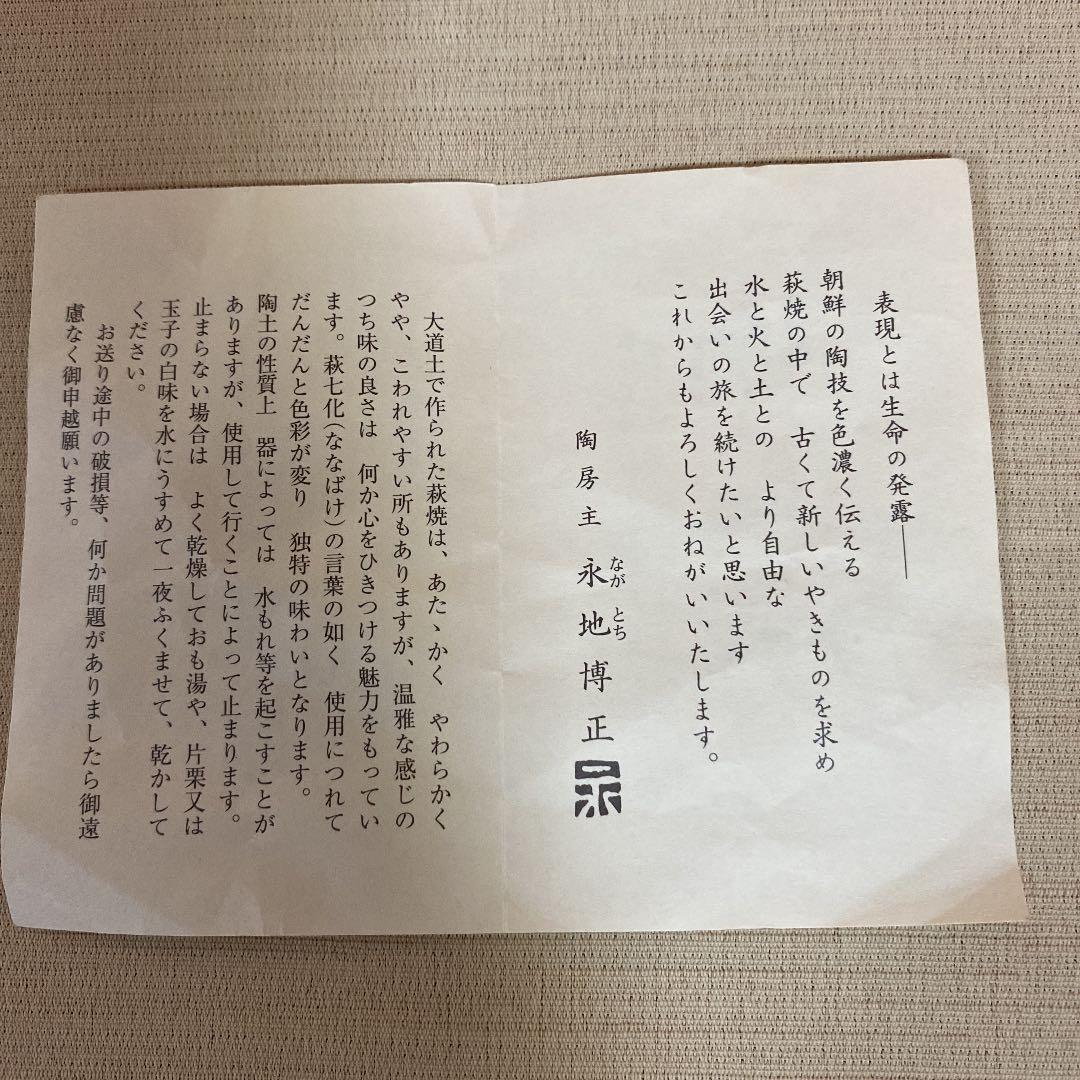 表現とは生命の発露――
朝鮮の陶技を色濃く伝える
萩焼の中で　古くて新しいやきものを求め
水と火と土との　より自由な
出会いの旅を続けたいと思います
これからもよろしくおねがいいたします。
陶房主　永地博正
なが　とち
大道土で作られた萩焼は、あたゝかく　やわらかく
やや、こわれやすい所もありますが、温雅な感じの
つち味の良さは　何か心をひきつける魅力をもってい
ます。萩七化(ななばけ)の言葉の如く　使用につれて
だんだんと色彩が変り　独特の味わいとなります。
陶土の性質上　器によっては　水もれ等を起こすことが
ありますが、使用して行くことによって止まります。
止まらない場合は　よく乾燥しておも湯や、片栗又は
玉子の白味を水にうすめて一夜ふくませて、乾かして
ください。
お送り途中の破損等、何か問題がありましたら御遠
慮なく御申越願います。